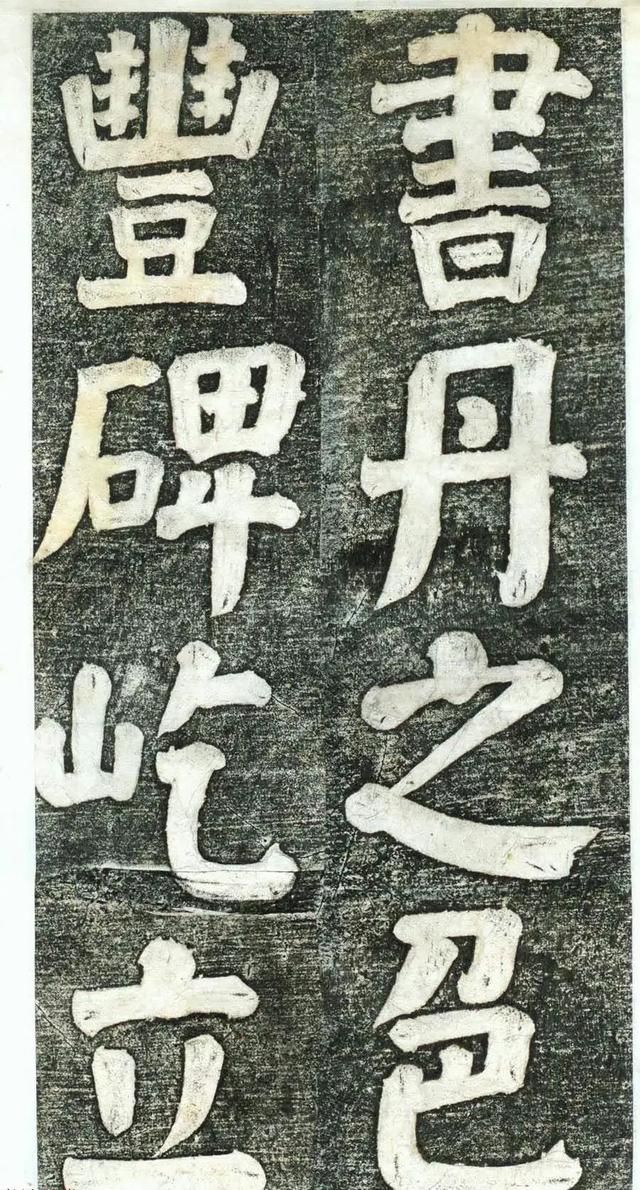 書丹之色
豐碑屹立